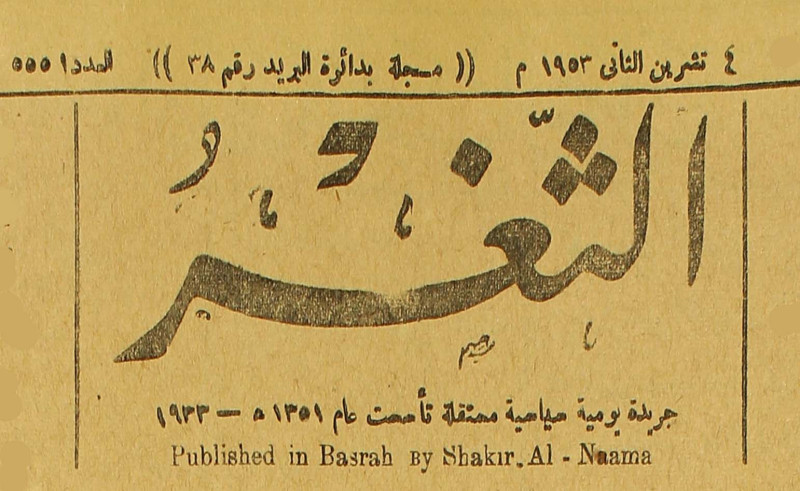 ٤ تشرين الثانى ١٩٥٣ م (( مسجلة بدائرة البريد رقم ٣٨ )) العدد ٥٥٥١
الثَّغْرُ
جريدة يومية سياسية مستقلة تأسست عام ١٣٥١ ه — ١٩٣٣
Published in Basrah By Shakir. Al - Naama